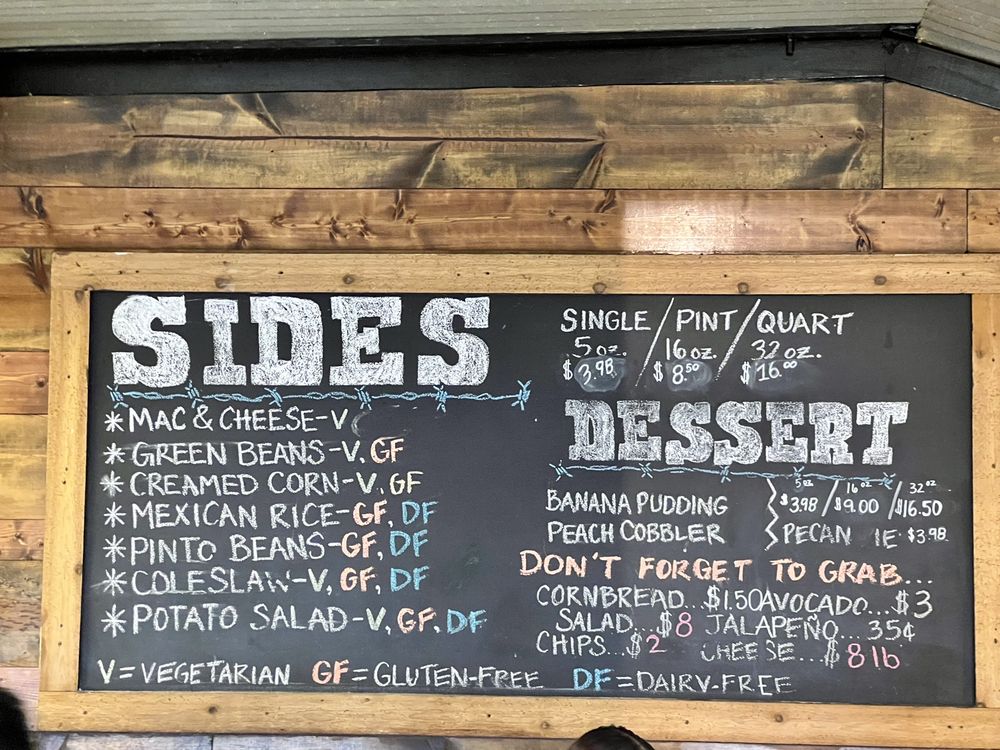 SIDES
* MAC & CHEESE-V
* GREEN BEANS-V, GF
* CREAMED CORN-V, GF
* MEXICAN RICE-GF, DF
* PINTO BEANS-GF, DF
* COLESLAW-V, GF, DF
* POTATO SALAD-V, GF, DF
V=VEGETARIAN GF=GLUTEN-FREE DF=DAIRY-FREE
SINGLE / PINT / QUART
5 oz. / 16 oz. / 32 oz.
$3.98 / $8.50 / $16.00
DESSERT
5oz 16oz 32oz
BANANA PUDDING $3.98 / $9.00 / $16.50
PEACH COBBLER PECAN IE $3.98
DON'T FORGET TO GRAB...
CORNBREAD...$1.50 AVOCADO...$3
SALAD...$8 JALAPEÑO...35¢
CHIPS...$2 CHEESE...$8 lb